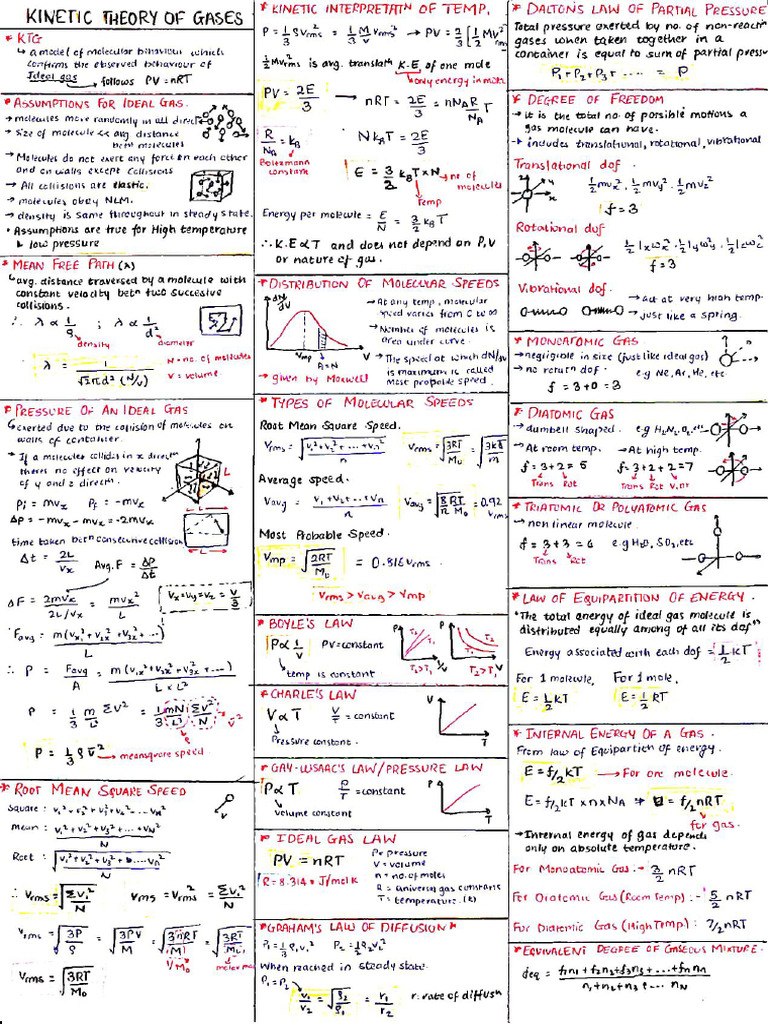 KINETIC THEORY OF GASES
* KTG
↳ a model of molecular behaviour which
confirms the observed behaviour of
Ideal gas
↳ follows PV = nRT
* ASSUMPTIONS FOR IDEAL GAS.
→ molecules move randomly in all directn
→ size of molecule << avg. distance
betn molecules
→ Molecules do not exert any force on each other
and on walls except collisions
→ All collisions are elastic.
→ molecules obey NLM.
→ density is same throughout in steady state.
• Assumptions are true for High temperature
& low pressure
* MEAN FREE PATH (λ)
↳ avg. distance traversed by a molecule with
constant velocity betn two succesive
collisions.
∴ λ ∝ 1/ρ ; λ ∝ 1/d²
density diameter
λ = 1/√2πd²(N/V)
N = no. of molecules
V = volume
* PRESSURE OF AN IDEAL GAS
↳ exerted due to the collision of molecules on
walls of container.
→ If a molecule collides in x directn
theres no effect on velocity
of y and z directn.
Pi = mvx Pf = -mvx
Δp = -mvx - mvx = -2mvx
time taken betn consecutive collision
Δt = 2L/vx Avg. F = Δp/Δt
ΔF = 2mvx/2L/vx = mvx²/L
vx = vy = vz = v/3
Favg = m(v1x² + v2x² + v3x² + ...)/L
∴ P = Favg/A = m(v1x² + v2x² + v3x² + ...)/L×L²
P = 1/3 m/L³ Σv² = 1/3 mN/L³ Σv²/N
P = 1/3 ρ v̄² → meansquare speed
* ROOT MEAN SQUARE SPEED
Square : v1² + v2² + v3² ... vN²
Mean : v1² + v2² + v3² + ... vN²/N
Root : √v1² + v2² + v3² + ... vn²/N
∴ vrms = √Σvi²/N vrms = vrms² = Σvi²/N
vrms = √3P/ρ = √3PV/M = √3nRT/M = √3RT/M0
1/M0 molar mass
vrms = √3RT/M0
* KINETIC INTERPRETATN OF TEMP.
P = 1/3 ρvrms² = 1/3 M/V vrms² → PV = 2/3 [1/2 Mv²rms]
1/2 Mv²rms is avg. translatn K.E. of one mole
only energy in mole
PV = 2E/3 → nRT = 2E/3 = nNA R/NA T
R/NA = kB NkBT = 2E/3
Boltzmann
constant
E = 3/2 kBT × N → no. of
molecules
Temp
Energy per molecule = E/N = 3/2 kBT
∴ K.E ∝ T and does not depend on P,V
or nature of gas.
* DISTRIBUTION OF MOLECULAR SPEEDS
dN/dV
Vmp V
A = N
→ given by Maxwell
→ At any temp, molecular
speed varies from 0 to ∞
→ Number of molecules is
area under curve.
→ The speed at which dN/dv
is maximum is called
Most probable speed.
* TYPES OF MOLECULAR SPEEDS
Root Mean Square Speed.
vrms = √v1² + v2² + ... vn²/n vrms = √3RT/M0 = √3kB/m
Average speed.
vavg = v1 + v2 + ... + vn/n vavg = √8RT/πM0 = 0.92 vrms
Most Probable Speed.
vmp = √2RT/M0 = 0.816 vrms
vrms > vavg > vmp
* BOYLE'S LAW
P ∝ 1/V PV = constant
temp is constant
P T2 T1 1/V T2 > T1
P T2 T1 V T2 > T1
* CHARLE'S LAW
V ∝ T V/T = constant
Pressure constant.
V T
* GAY-LUSAAC'S LAW/PRESSURE LAW
P ∝ T P/T = constant
volume constant
P T
* IDEAL GAS LAW
PV = nRT
R = 8.314 J/mol K
P = pressure
V = volume
n = no. of moles
R = universal gas constant
T = temperature. (k)
* GRAHAM'S LAW OF DIFFUSION
P1 = 1/3 ρ1v1² P2 = 1/3 ρ2v2²
When reached in steady state.
P1 = P2
v1/v2 = √ρ2/ρ1 = r1/r2 r: rate of diffusn
* DALTON'S LAW OF PARTIAL PRESSURE
Total pressure exerted by no. of non-reactin
gases when taken together in a
container is equal to sum of partial pressu
P1 + P2 + P3 + .... = P
* DEGREE OF FREEDOM
→ it is the total no. of possible motions a
gas molecule can have.
→ includes translational, rotational, vibrational
Translational dof
1/2 mvx², 1/2 mvy², 1/2 mvz²
f = 3
Rotational dof
1/2 Ixωx², 1/2 Iyωy², 1/2 Izωz²
f = 3
Vibrational dof.
→ act at very high temp.
→ just like a spring.
* MONOATOMIC GAS
→ negligible in size (just like ideal gas)
→ no rotatn dof. e.g Ne, Ar, He, etc
f = 3 + 0 = 3
* DIATOMIC GAS
→ dumbell shaped. e.g H2, N2, O2, etc
→ At room temp. → At high temp.
f = 3 + 2 = 5 f = 3 + 2 + 2 = 7
Trans Rot Trans Rot Vibr
* TRIATOMIC OR POLYATOMIC GAS
→ non linear molecule.
f = 3 + 3 = 6 e.g H2O, SO3, etc
Trans Rot
* LAW OF EQUIPARTITION OF ENERGY.
• The total energy of ideal gas molecule is
distributed equally among of all its dof
Energy associated with each dof = 1/2 kT
For 1 molecule, For 1 mole,
E = 1/2 kT E = 1/2 RT
* INTERNAL ENERGY OF A GAS.
From law of Equipartion of energy.
E = f/2 kT → For one molecule.
E = f/2 kT × n × NA ⇒ U = f/2 nRT
for gas.
→ Internal energy of gas depends
only on absolute temperature.
For Monoatomic Gas :- 3/2 nRT
For Diatomic Gas (Room Temp) :- 5/2 nRT
For Diatomic Gas (High Temp) : 7/2 nRT
* EQUIVALENT DEGREE OF GASEOUS MIXTURE.
deq = f1n1 + f2n2 + f3n3 + ... + fnnn/n1 + n2 + n3 + ... nN